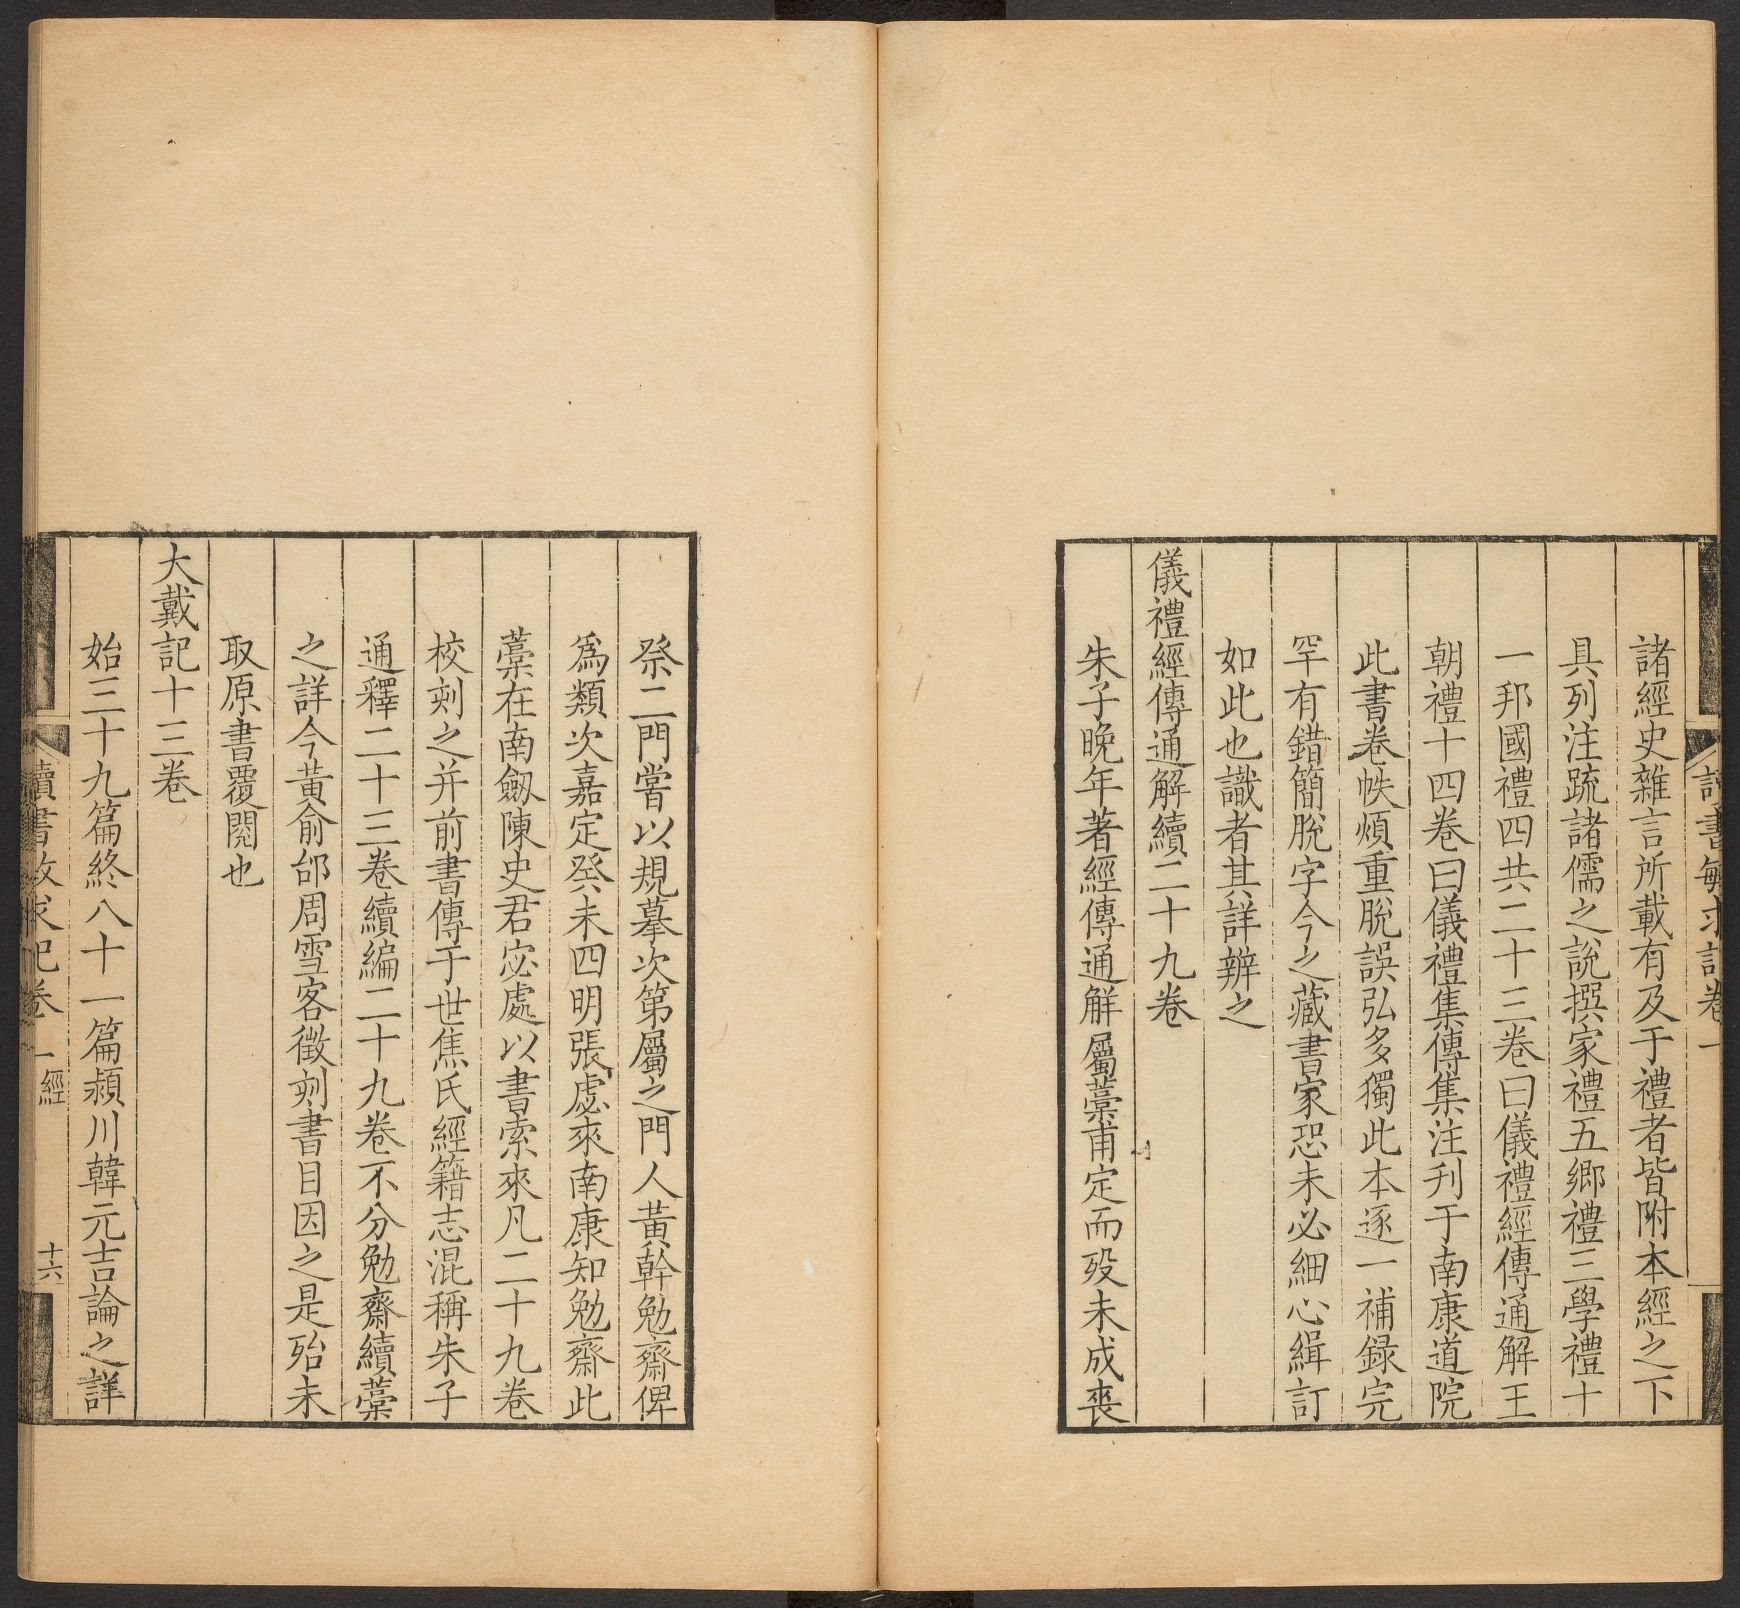 諸經史雜言所載有及于禮者皆附本經之下
具列注疏諸儒之說撰家禮五鄉禮三學禮十
一邦國禮四共二十三卷曰儀禮經傳通解王
朝禮十四卷曰儀禮集傳集注刊于南康道院
此書卷帙煩重脫誤弘多獨此本逐一補録完
罕有錯簡脫字今之藏書家恐未必細心緝訂
如此也識者其詳辨之
儀禮經傳通解續二十九卷
朱子晚年著經傳通解屬藁甫定而歿未成喪
祭二門嘗以規摹次第屬之門人黃幹勉齋俾
爲類次嘉定癸未四明張虙來南康知勉齋此
藁在南劔陳史君宓處以書索來凡二十九卷
校刻之并前書傳于世焦氏經籍志混稱朱子
通釋二十三卷續編二十九卷不分勉齋續藁
之詳今黃俞邰周雪客徵刻書目因之是殆未
取原書覆閱也
大戴記十三卷
始三十九篇終八十一篇潁川韓元吉論之詳
讀書敏求記卷一 經 十六